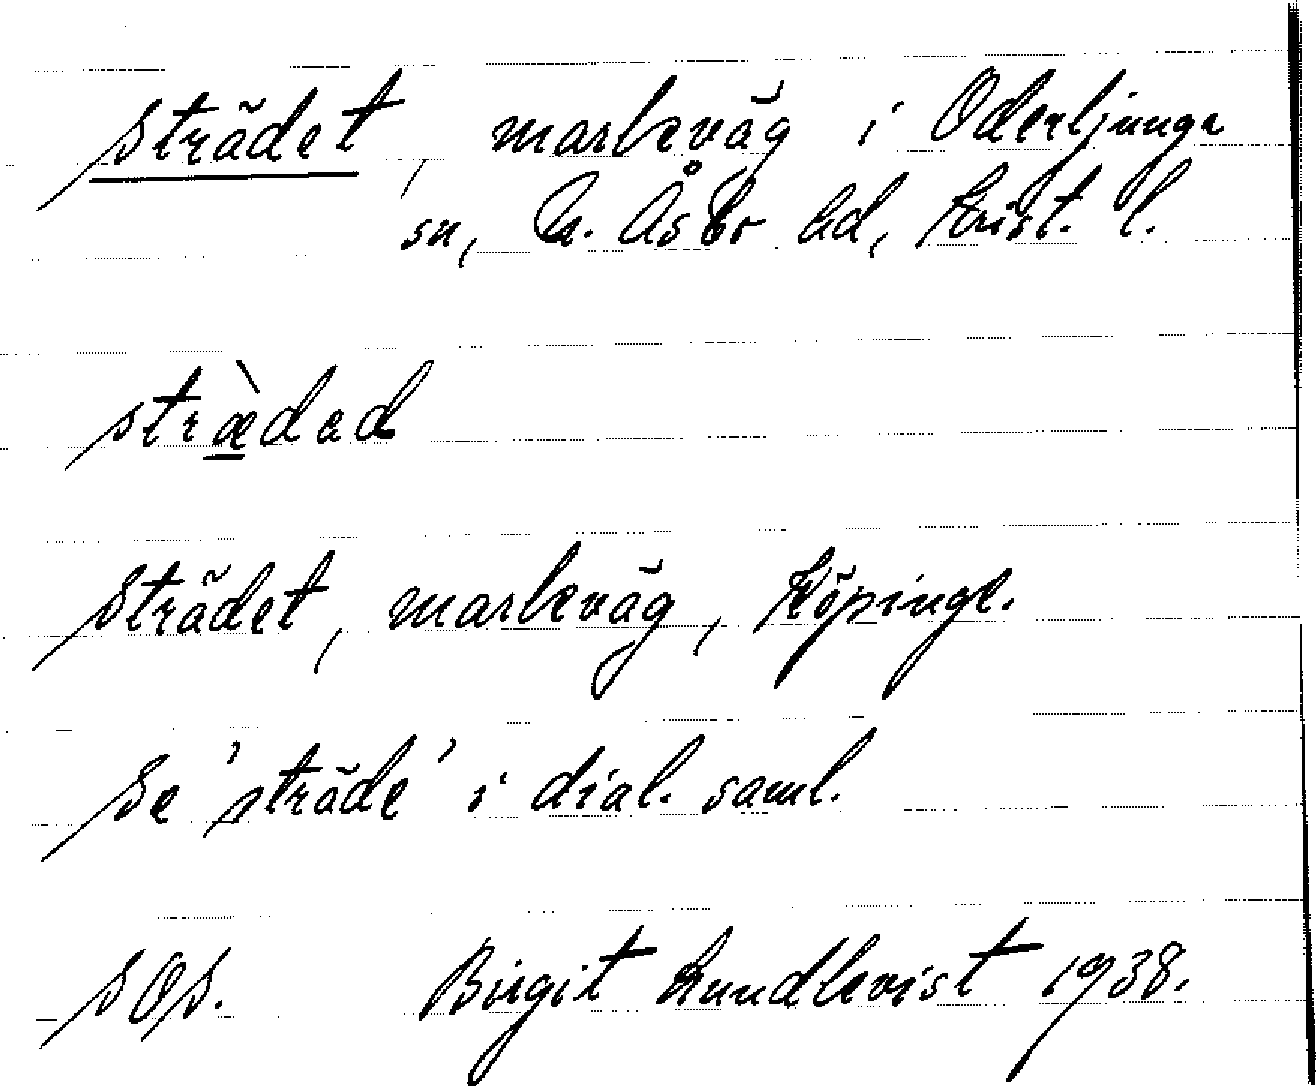 Strädet, markväg i Oderljunga
sn, N. Åsbo hd, Krist. l.
stræ̀dad
Strädet, markväg, Köpinge.
Se 'sträde' i dial. saml.
SOS. Birgit Lundkvist 1938.